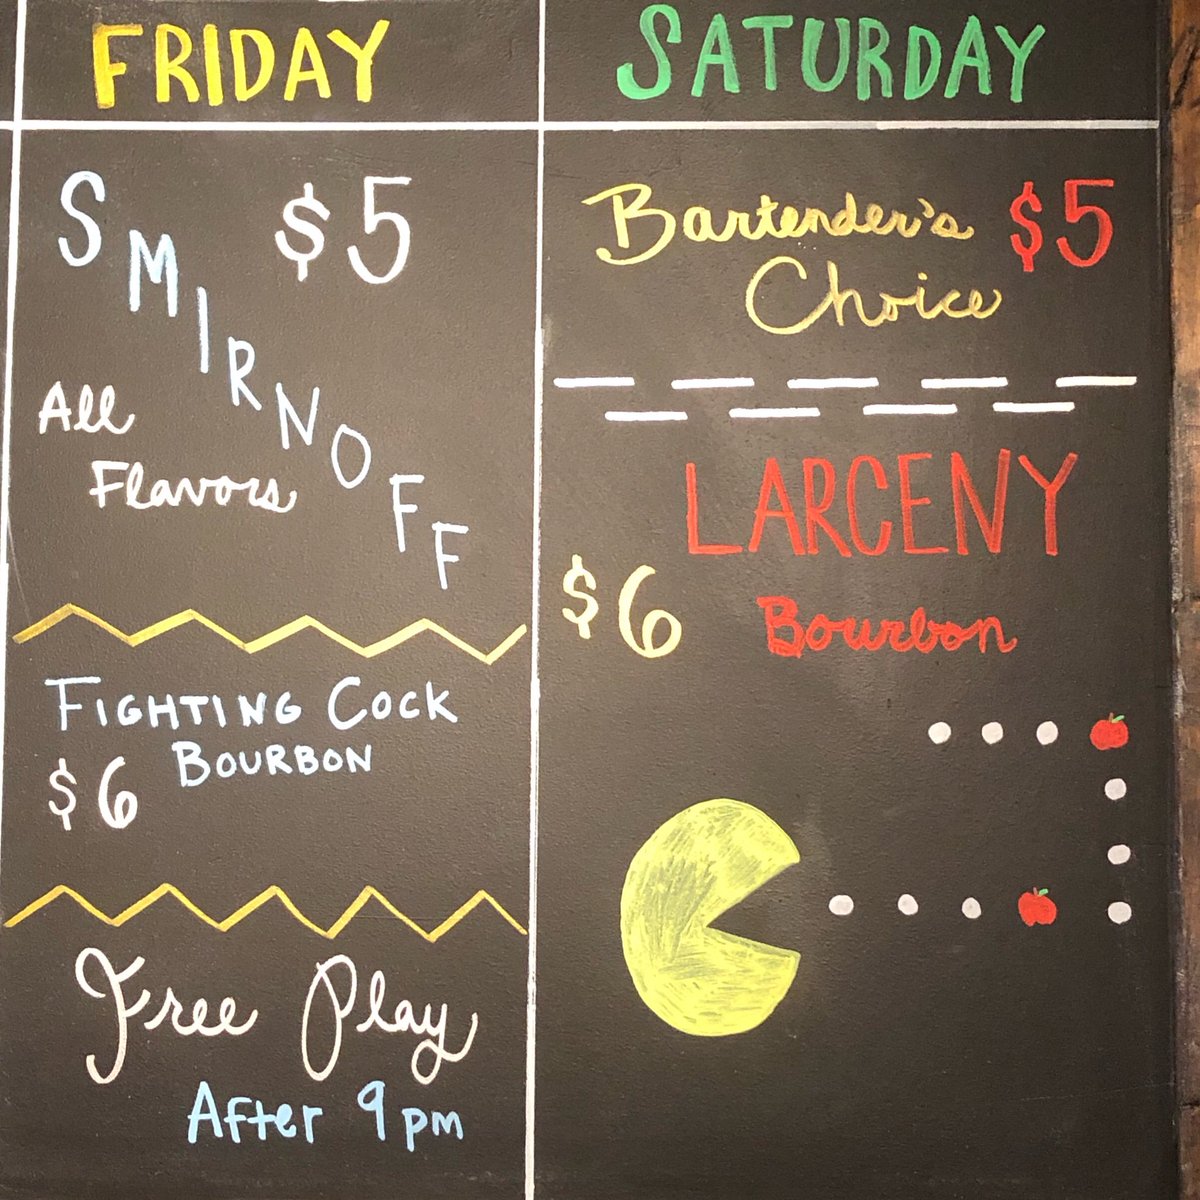 FRIDAY
SMIRNOFF $5
All
Flavors
FIGHTING COCK
BOURBON
$6
Free Play
After 9pm
SATURDAY
Bartender's $5
Choice
LARCENY
$6 Bourbon